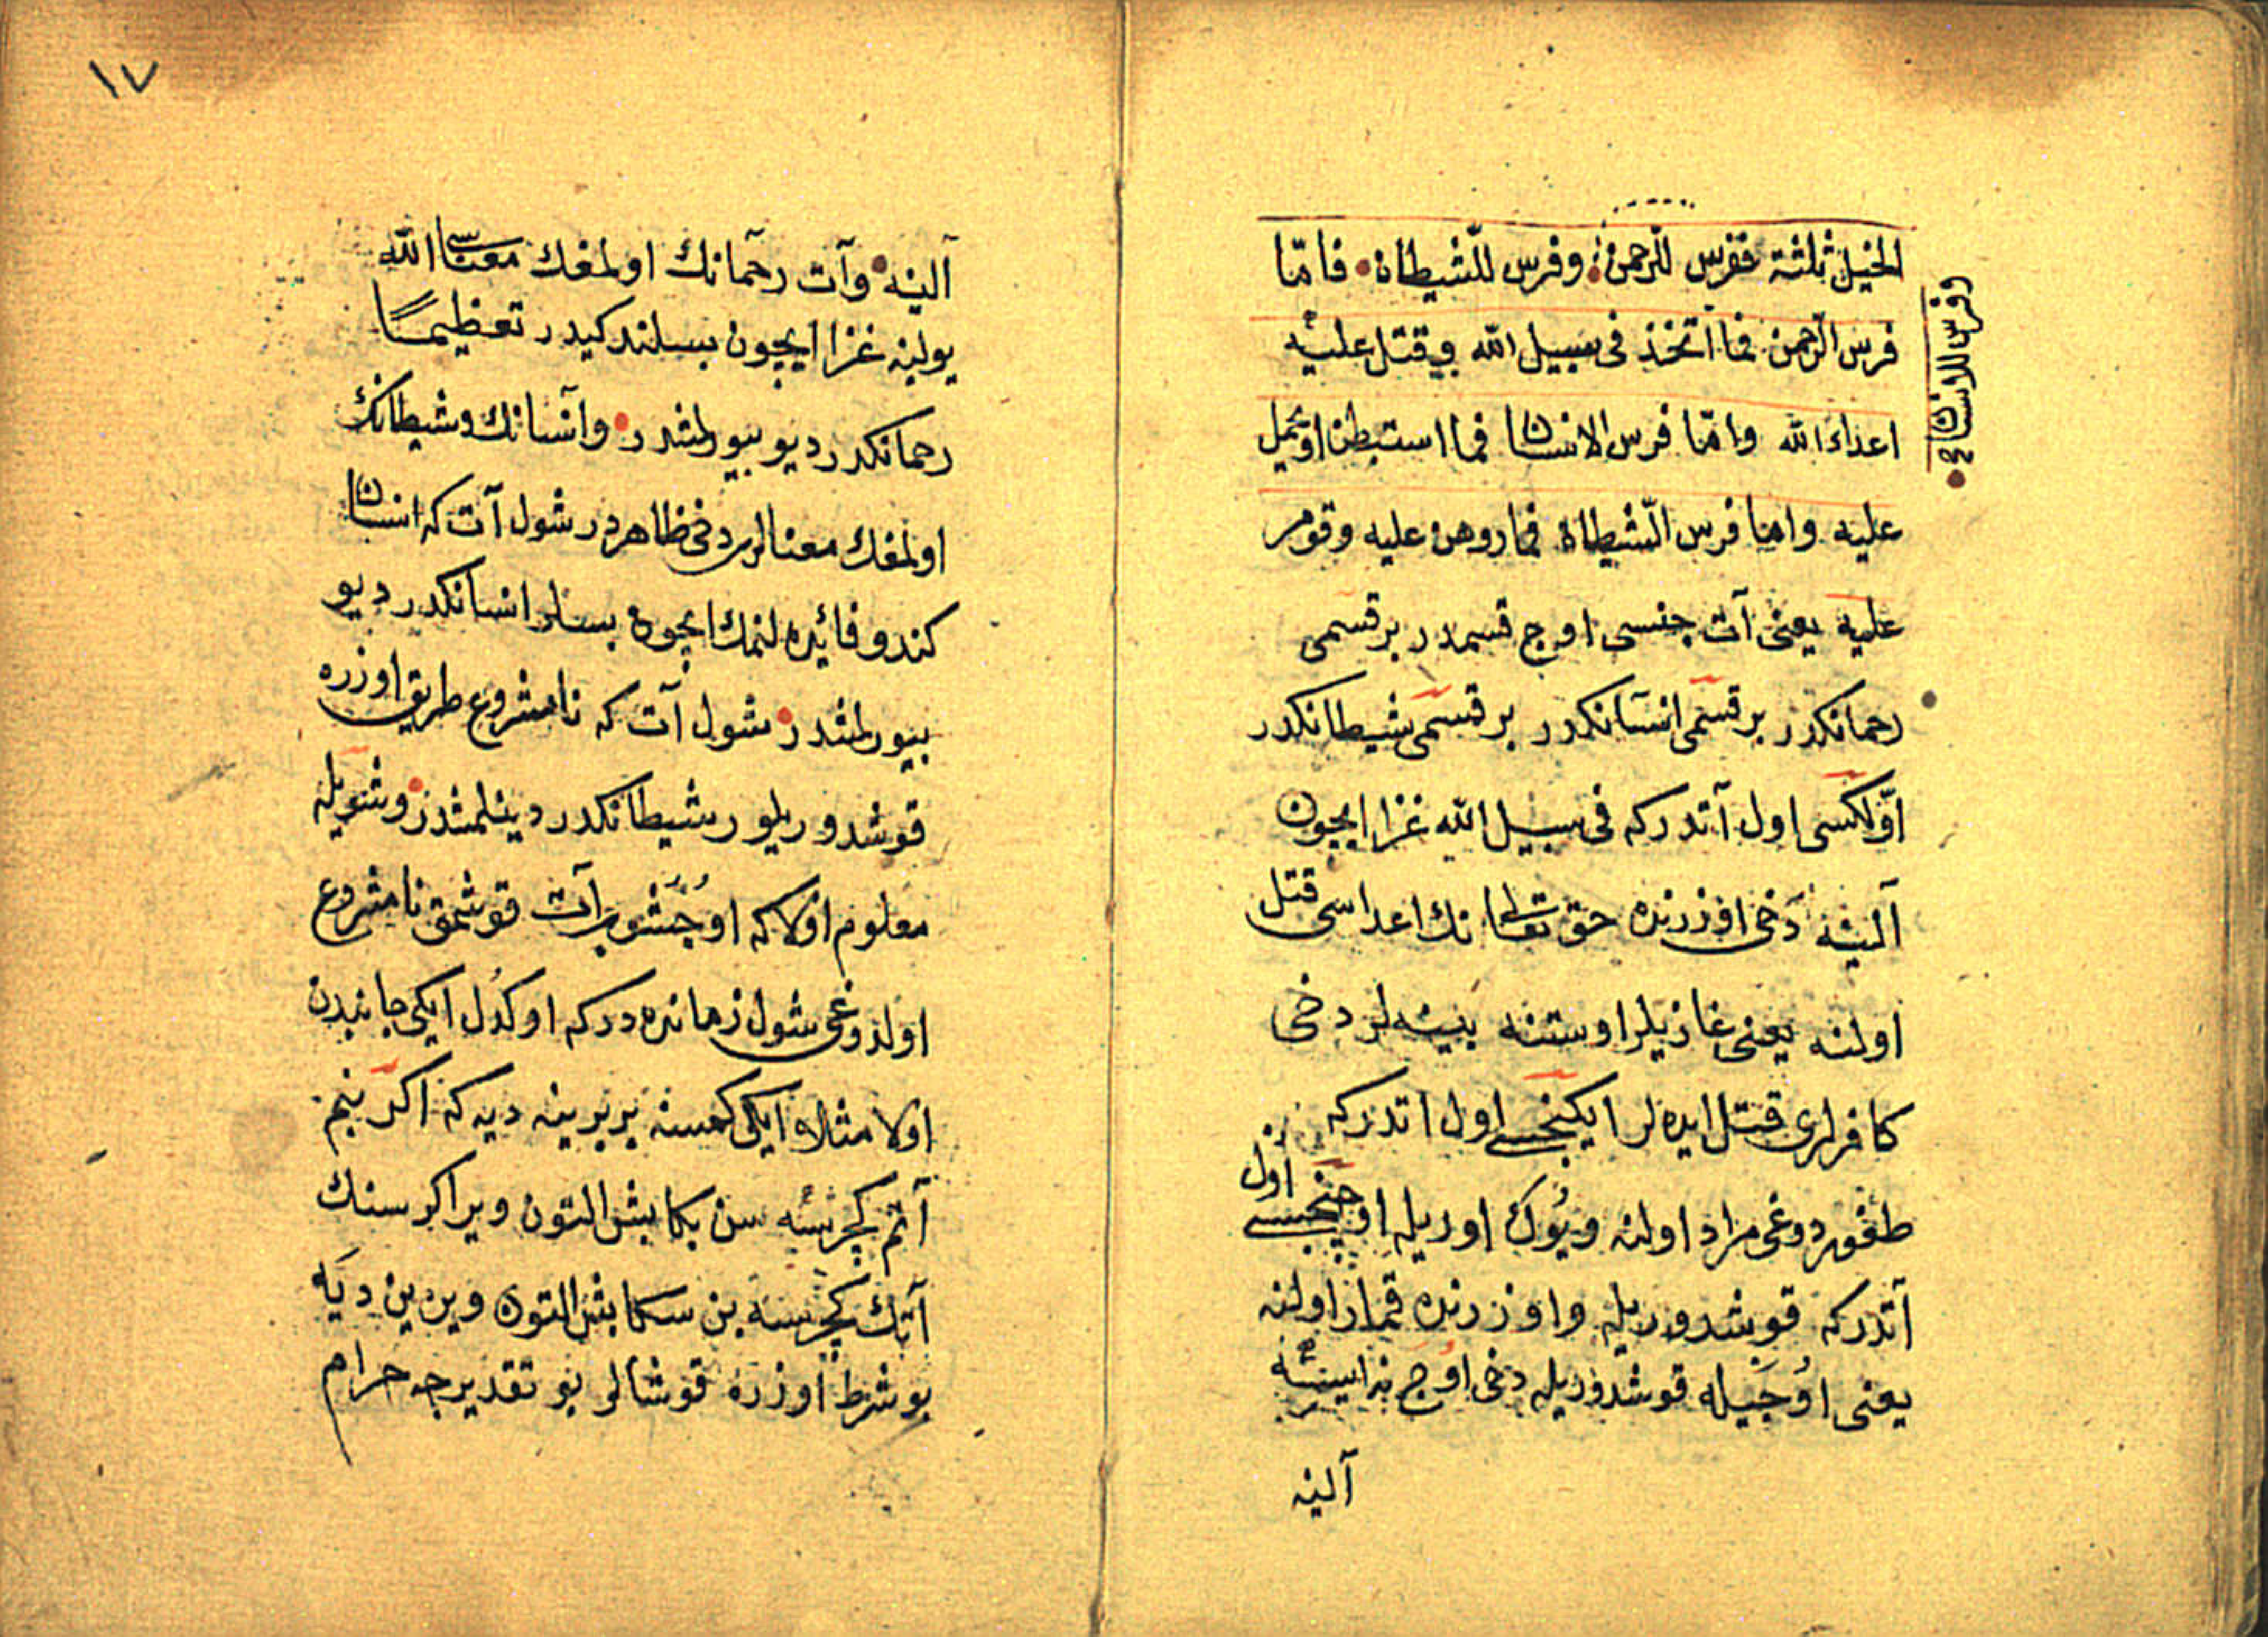 الخيل ثلثة ففرس للرحمن وفرس للشيطان فامّا
وفرس للانسان صح
فرس الرحمن فما اتخذ فى سبيل الله و قتل عليه
اعداء الله وامّا فرس الانسان فما استبطن او يحمل
عليه واما فرس الشيطان فما روهن عليه وقومر
عليه يعنى آت جنسى اوج قسمدر بر قسمى
رحمانكدر بر قسمى انسانكدر بر قسمى شيطانكدر
اوّلكسى اول آتدركه فى سبيل الله غزا ايچون
آلينه دخى اوزرنده حق تعالى نك اعداسى قتل
اولنه يعنى غازيلر اوستنه بينه لر دخى
كافرلرى قتل ايده لر ايكنجسى اول اتدركه
طغوردوغى مراد اولنه ويوك اوريله اوچنجسى اول
آتدركه قوشدوريله واوزرنده قمار اولنه
يعنى اوجيله قوشدوريله دخى اوج نه ايسه
آلينه
١٧
آلينه وآت رحمانك اولمغك معناسى الله
يولينه غزا ايچون بسلندكيدر تعظيمًا
رحمانكدر ديو بيورلمشدر وانسانك وشيطانك
اولمغك معنالرى دخى ظاهردر شول آت كه انسان
كندو فائيده لنمك ايچون بسلر انسانكدر ديو
بيورلمشدر شول آت كه نامشروع طريق اوزره
قوشدوريلور شيطانكدر دينلمشدر وشويله
معلوم اولا كه اوجشوب آت قوشمق نامشروع
اولدوغى شول زمانده دركه اوكدل ايكى جانبدن
اولا مثلا ايكى كمسنه بربرينه ديه كه اكر بنم
آتم كچرسه سن بكا بش التون وير اكر سنك
آتك كچرسه بن سكا بش التون ويره ين ديه
بو شرط اوزره قوشالر بو تقديرجه حرام